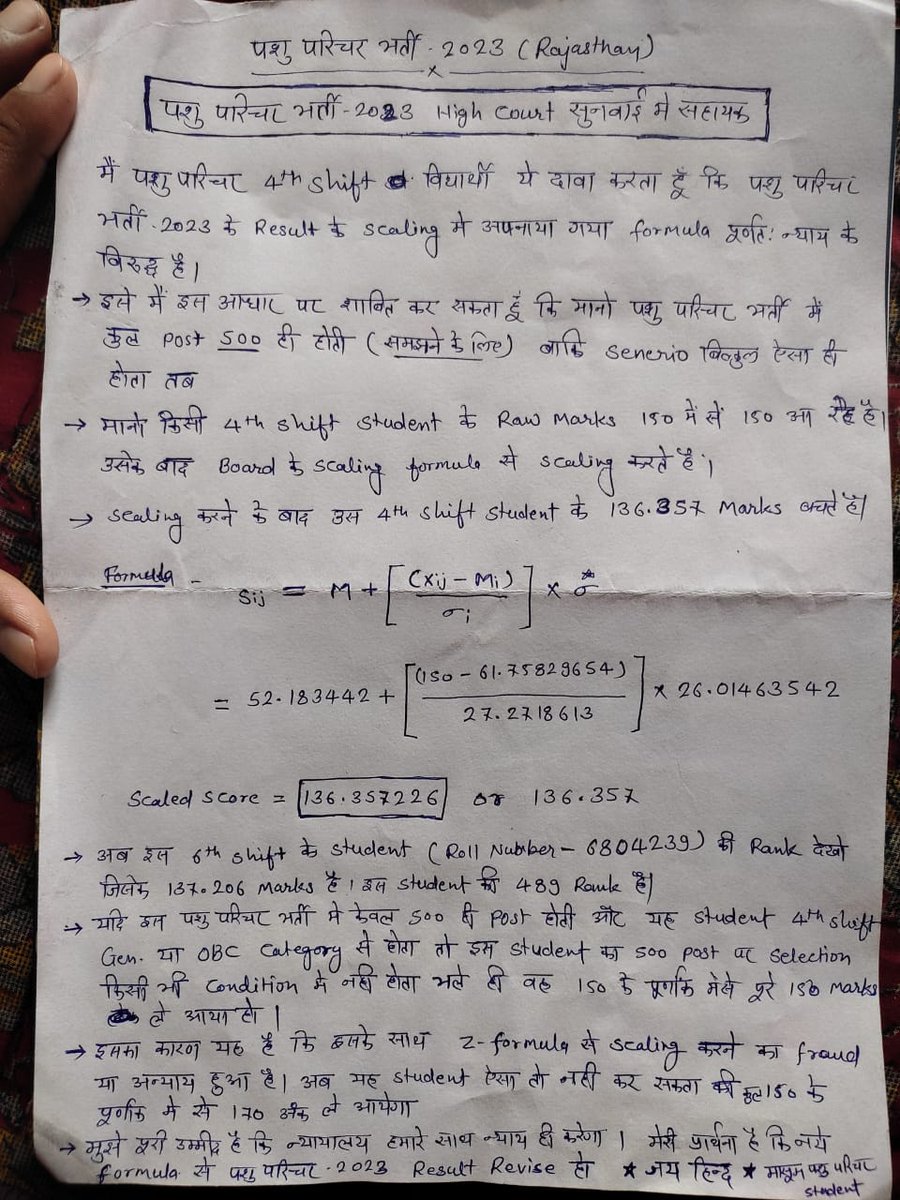 पशु परिचर भर्ती - 2023 (Rajasthan)
x
पशु परिचर भर्ती - 2023 High Court सुनवाई मे सहायक
मैं पशु परिचर 4th shift विद्यार्थी ये दावा करता हूँ कि पशु परिचर
भर्ती - 2023 के Result के scaling मे अपनाया गया formula पूर्णत: न्याय के
विरुद्ध है।
→ इसे मैं इस आधार पर शाबित कर सकता हूँ कि मानो पशु परिचर भर्ती में
कुल Post 500 ही होती (समझने के लिए) बाकि senerio बिल्कुल ऐसा ही
होता तब
→ मानो किसी 4th shift student के Raw Marks 150 में से 150 आ रहे है।
उसके बाद Board के scaling formula से scaling करते है।
→ scaling करने के बाद उस 4th shift student के 136.357 Marks बचते है।
Formula -
Sij = M + [(Xij - Mi) / σi] × σ*
= 52.183442 + [(150 - 61.75829654) / 27.2718613] × 26.01463542
Scaled Score = 136.357226 or 136.357
→ अब इस 6th shift के student (Roll Number - 6804239) की Rank देखो
जिसके 137.206 marks है। इस student की 489 Rank है।
→ यदि इस पशु परिचर भर्ती मे केवल 500 ही Post होती और यह student 4th shift
Gen. या OBC Category से होता तो इस student का 500 post पर selection
किसी भी condition मे नही होता भले ही वह 150 के पूर्णांक मेसे पूरे 150 marks
ले आया हो।
→ इसका कारण यह है कि इसके साथ Z-formula से scaling करने का fraud
या अन्याय हुआ है। अब यह student ऐसा तो नही कर सकता की कुल 150 के
पूर्णांक मे से 170 अंक ले आयेगा
→ मुझे पूरी उम्मीद है कि न्यायालय हमारे साथ न्याय ही करेगा। मेरी प्रार्थना है कि नये
formula से पशु परिचर - 2023 Result Revise हो ★ जय हिन्द ★ मासूम पशु परिचर
student